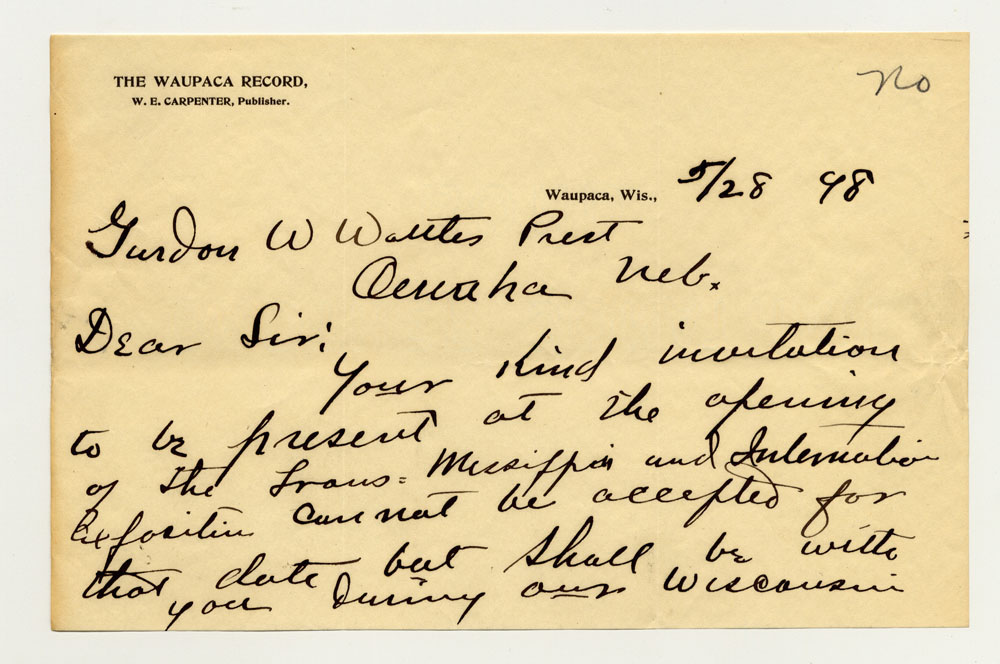 THE WAUPACA RECORD,
W. E. CARPENTER, Publisher.
No
Waupaca, Wis., 5/28 98
Gurdon W Wattles Prest
Omaha Neb.
Dear Sir:
Your kind invitation
to be present at the opening
of the Trans-Mississippi and Internation
Exposition cannot be accepted for
that date but shall be with
you During our Wisconsin